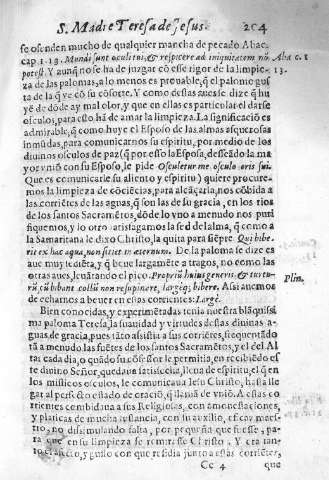 S. Madre Teresa de Iesus. 204
se ofenden mucho de qualquier mancha de pecado Abac.
cap. 1. 13. Mundi sunt oculi tui, & respicere ad iniquitatem nõ Aba c. 1
potest. Y aunq̃ no se ha de juzgar cõ esse rigor de la limpie- 13.
za de las palomas, alo menos es prouable, q̃ el palomo gus
ta de la q̃ ve cõ su cõsorte. Y como destas aues se dize q̃ hu
yẽ de dõde ay mal olor, y que en ellas es particular el dar se
osculos, para esto hã de amar la limpieza. La significació es
admirable, q̃ como huye el Esposo de las almas asquerosas
inmũdas, para comunicarnos su espiritu, por medio de los
diuinos osculos de paz (q̃ por esso la Esposa, desseãdo la ma
yor vniõ con su Esposo, le pide Osculetur me osculo oris sui.
Que es comunicarle su aliento y espiritu) quiere procure-
mos la limpieza de cõciẽcias, para alcãçarla, nos cõbida a
las corriẽtes de las aguas, q̃ son las de su gracia, en los rios
de los santos Sacramẽtos, dõde lo vno a menudo nos puri
fiquemos, y lo otro satisfagamos la sed de la alma, q̃ como a
la Samaritana le dixo Christo, la quita para siẽpre. Qui bibe-
rit ex hac aqua, non sitiet in æternum. De la paloma se dize es
aue muy sediẽta, y q̃ beue largamẽte a tragos, no como las
otras aues, leuãtando el pico. Propriũ huius generis, & turtu-
rũ, cũ bibant collũ non resupinare, largéq; bibere. Assi auemos Plin.
de echarnos a beuer en estas corrientes: Largè.
Bien conocidas, y experimẽtadas tenia nuestra blãquissi
ma paloma Teresa, la suauidad y virtudes destas diuinas a-
guas, de gracia, pues tãto assistiò a sus corriẽtes, frequentãdo
tã a menudo las fuẽtes de los santos Sacramẽtos, y el del Al
tar cada dia, o quãdo su cõfessor le permitia, en recibiẽdo es
te diuino Señor, quedaua satisfecha, llena de espiritu, el q̃ en
los misticos osculos, le comunicaua Iesu Christo, hasta lle
gar al perfecto estado de oració, q̃ llama de vniõ. A estas co
rrientes combidaua a sus Religiosas, con amonestaciones,
y platicas de mucha sustancia, con su auxilio, eficaz maes-
tro, no dissimulando falta, por pequeña que fuesse, pa-
ra que en su limpieza se remirasse Christo. Y era tan-
to el gusto con que residia junto a estas corriẽtes,
Cc 4 que